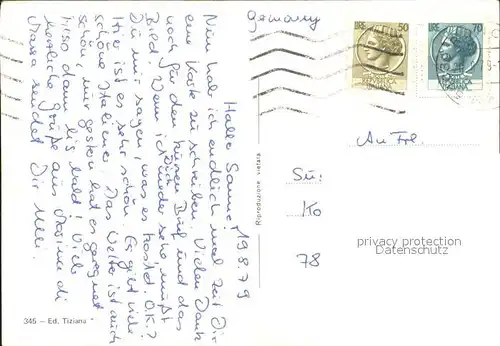 Germany
LIRE 50
LIRE 70
Hallo Sanne! 19.8.79
Nun hab ich endlich mal Zeit Dir
eine Karte zu schreiben. Vielen Dank
noch für den kurzen Brief und das
Bild. Wenn ich Dich wieder sehe mußt
Du mir sagen, was es kostet. OK.?
Hier ist es sehr schön. Es gibt viele
schöne Italiener. Das Wetter ist auch
schön, nur gestern hat es geregnet
Also dann bis bald! Viele
herzliche Grüße aus Marina di
Massa sendet Dir Ulli.
An Frl.
Su:
Ko
78
privacy protection
Datenschutz
Riproduzione vietata
345 - Ed. Tiziana